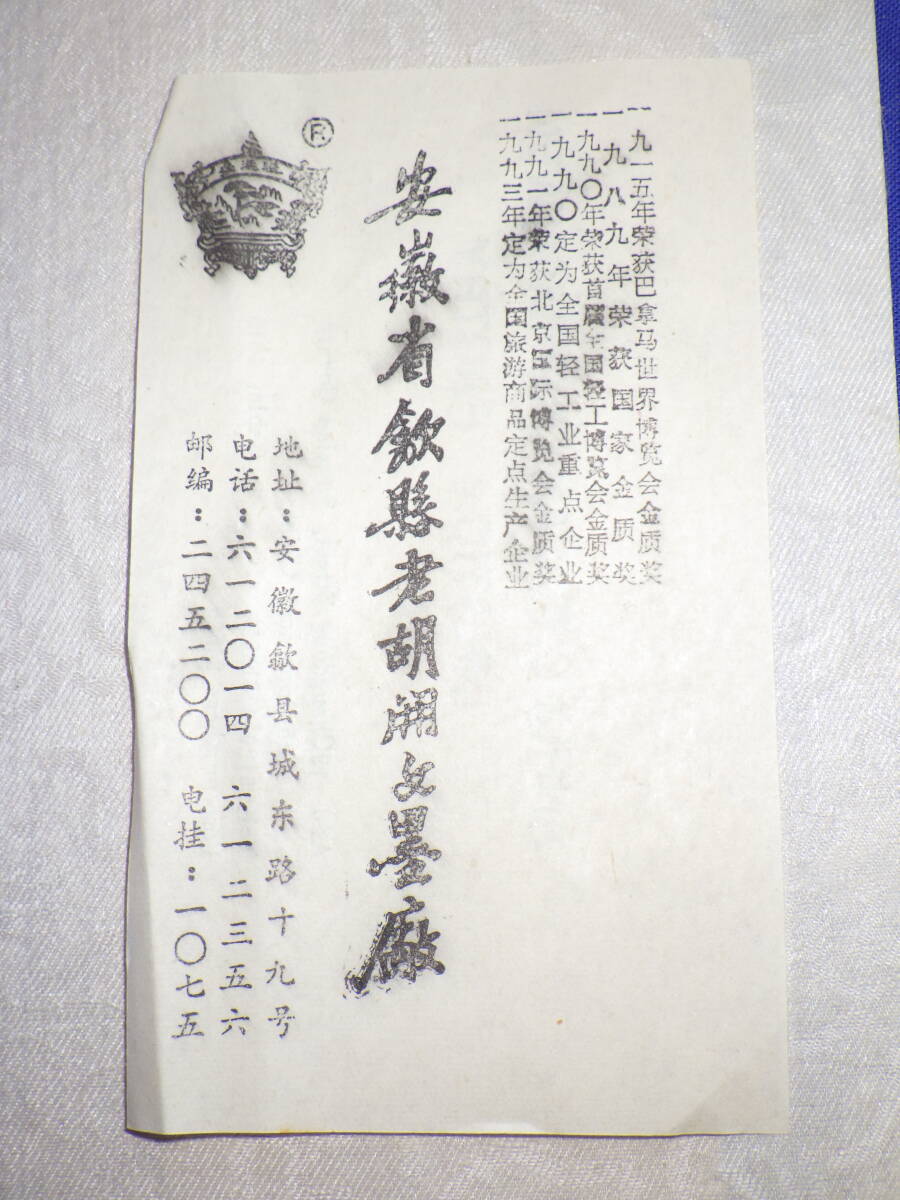 一九一五年荣获巴拿马世界博览会金质奖
一九八九年荣获国家金质奖
一九九〇年荣获首届全国轻工博览会金质奖
一九九〇定为全国轻工业重点企业
一九九一年荣获北京国际博览会金质奖
一九九三年定为全国旅游商品定点生产企业
安徽省歙縣老胡開文墨廠
地址：安徽歙县城东路十九号
电话：六一二〇一四 六一二三五六
邮编：二四五二〇〇 电挂：一〇七五
®